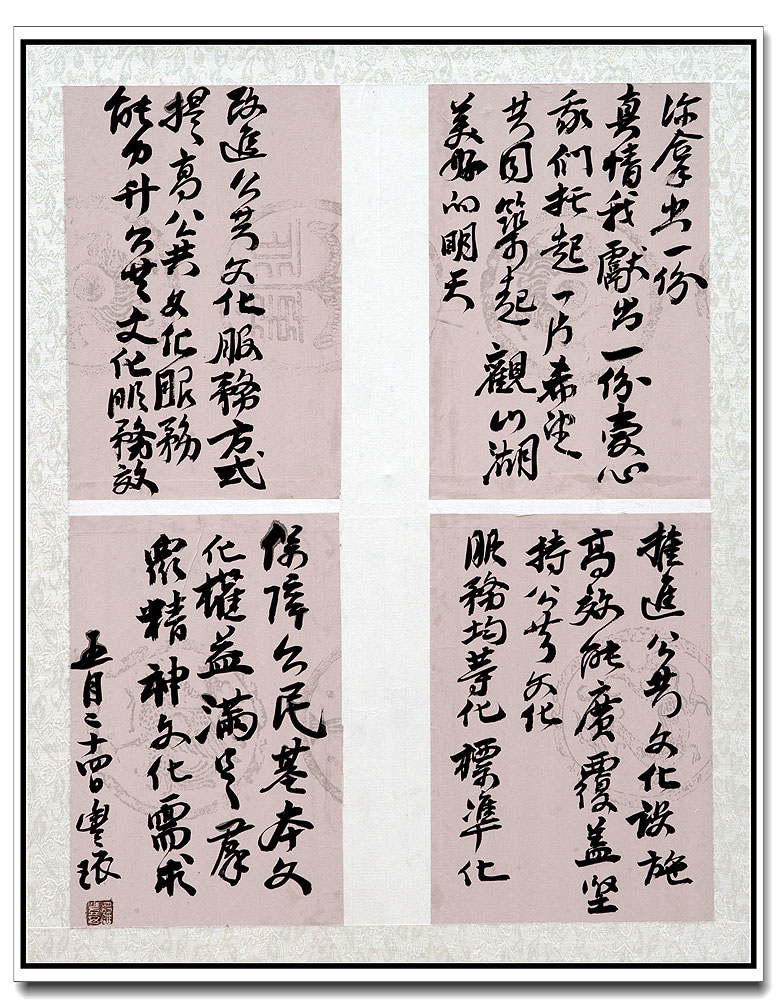 你拿出一份
真情我獻出一份愛心
我們托起一片希望
共同築起觀山湖
美好的明天
改進公共文化服務方式
提高公共文化服務
能力升公共文化服務效
推進公共文化設施
高效能廣覆盖坚
持公共文化
服務均等化標準化
保障公民基本文
化權益滿足群
眾精神文化需求
五月二十四日豐